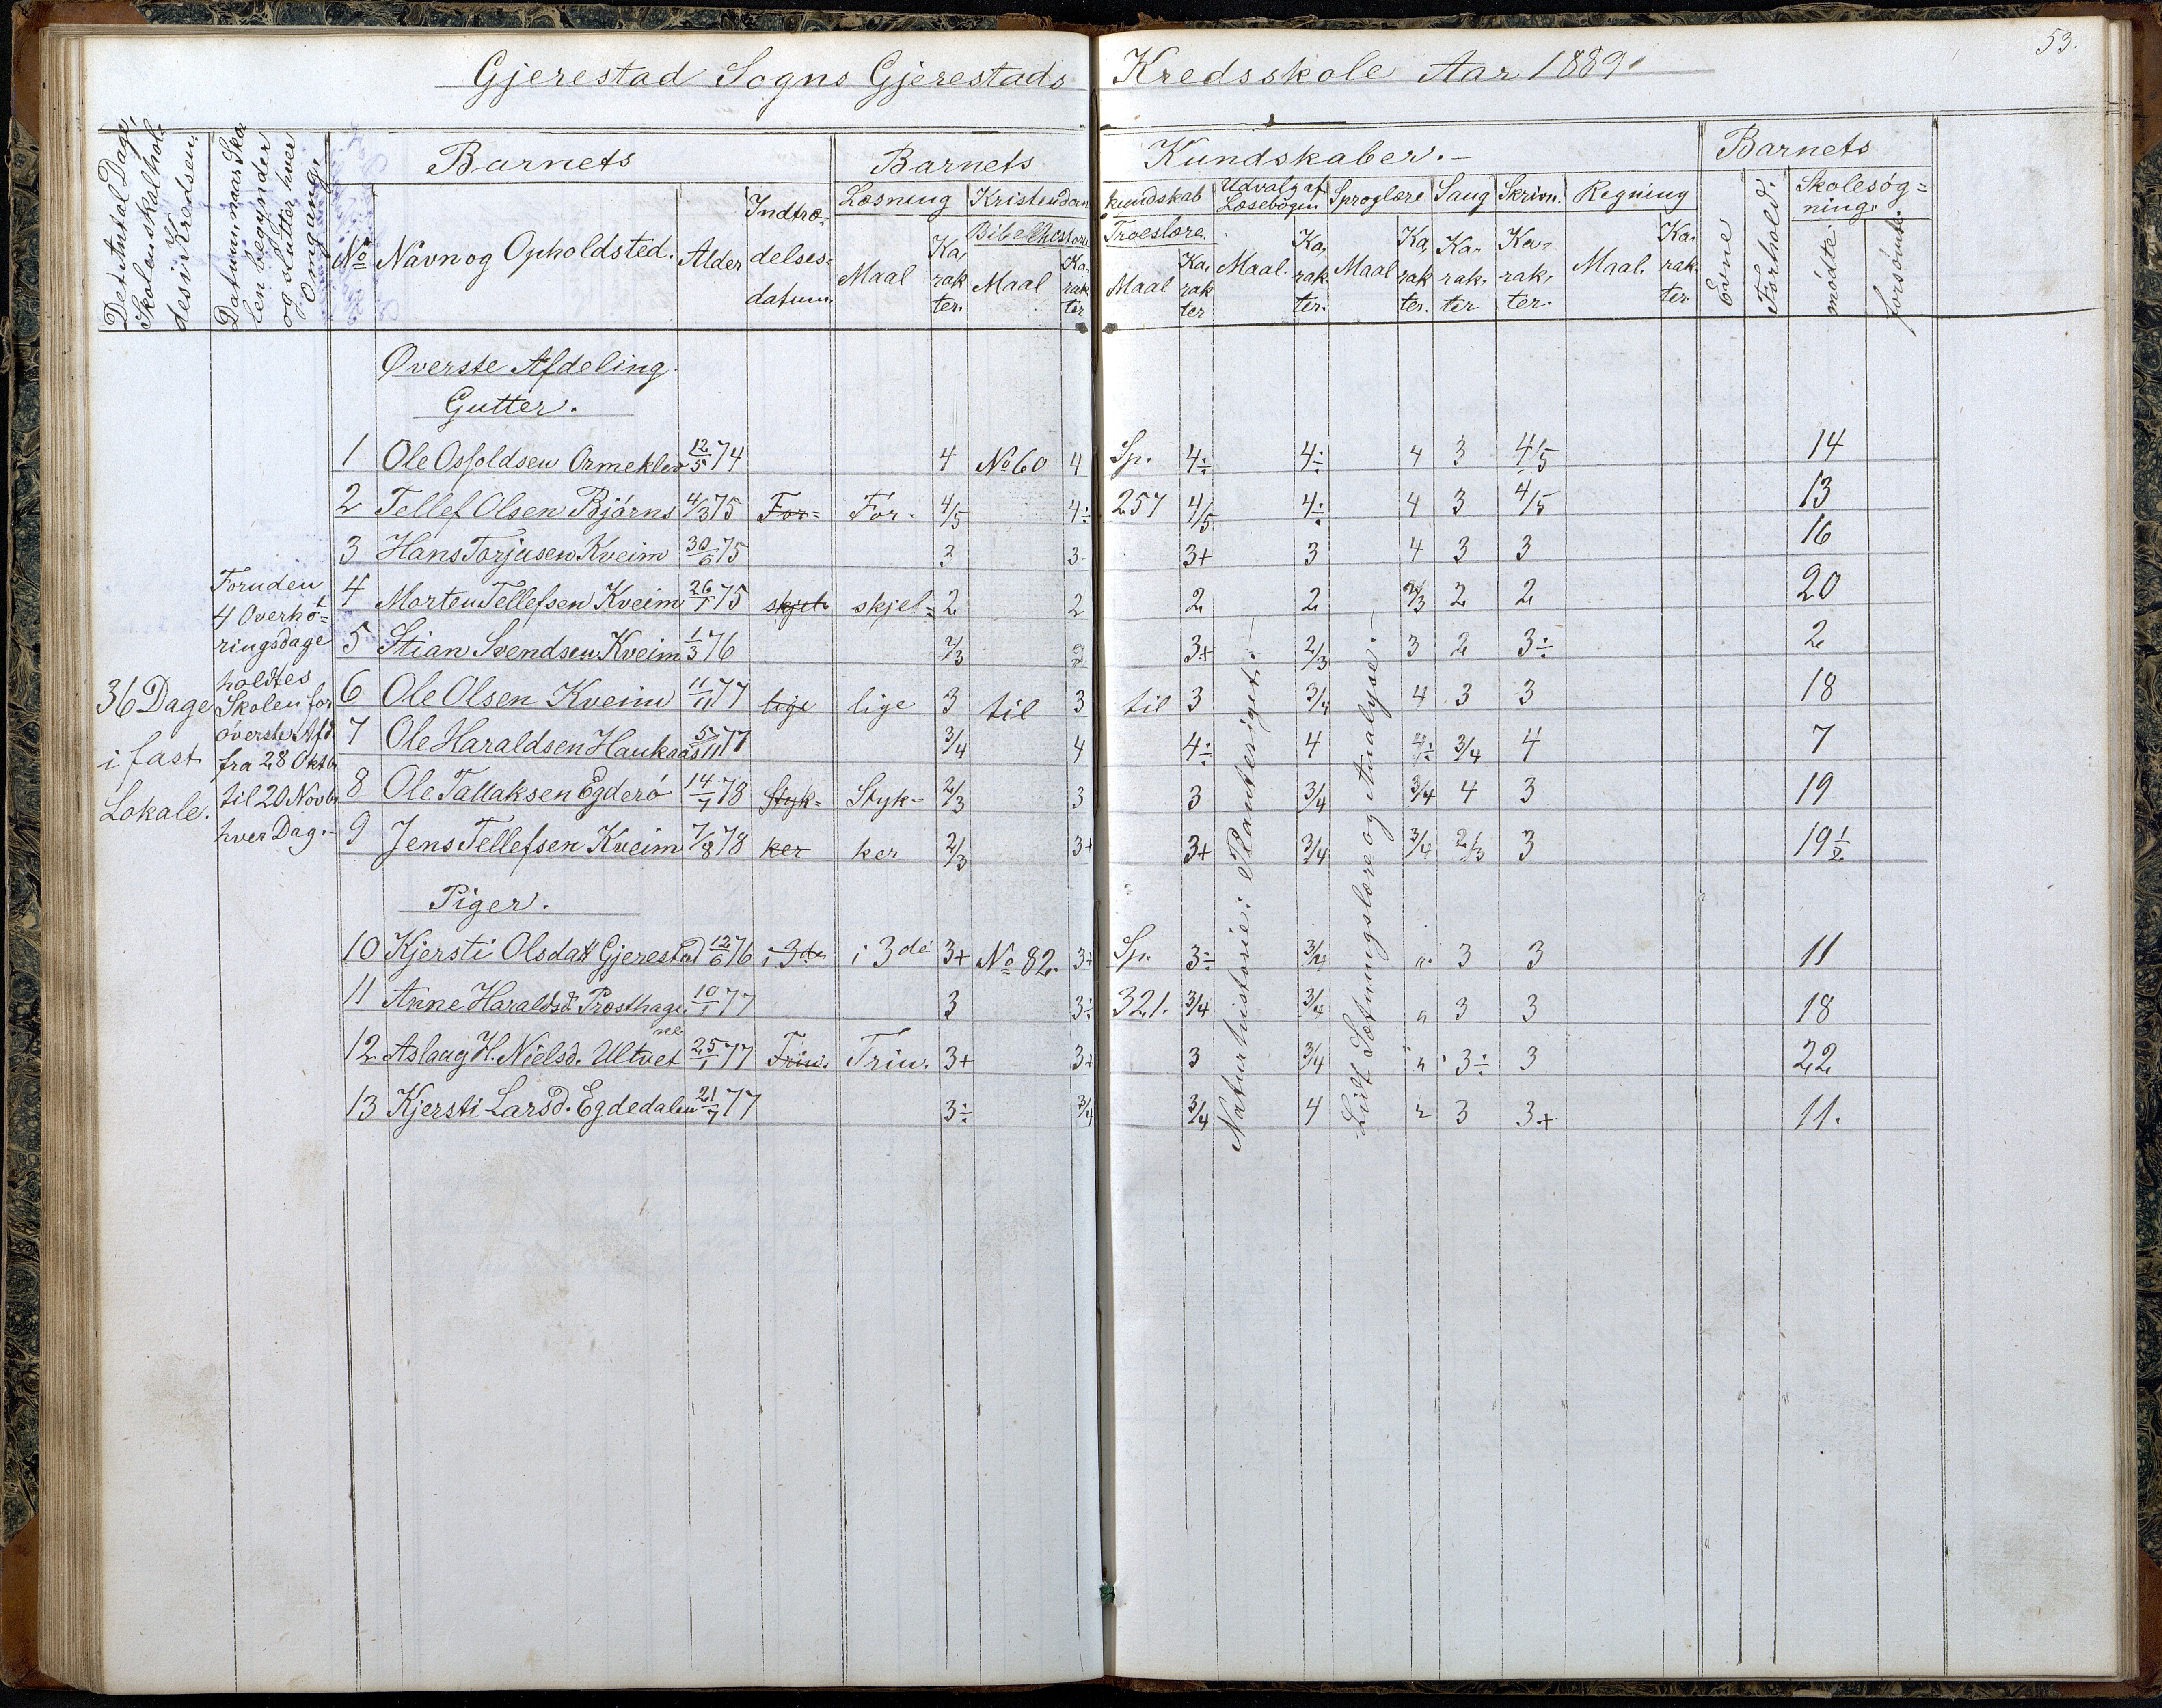 53.
Gjerestad Sogns Gjerestads Kredsskole Aar 1889.
Det Antal Dage, Skolen skal holdes i Kredsen.
Datum, naar Skolen begynder og slutter hver Omgang.
Barnets
Barnets Kundskaber.
Barnets
No Navn og Opholdsted. Alder Indtrædelsesdatum.
Læsning Kristendomskundskab Udvalg af Læsebogen Sproglære Sang Skrivn. Regning Evne Forhold. Skolesøgning.
Bibelhistorie Troeslære.
Maal Karakter. Maal Karakter Maal Karakter Maal. Karakter. Maal Karakter. Karakter Karakter. Maal. Karakter. mødte forsømte.
Øverste Afdeling.
Gutter.
1 Ole Osfoldsen Ormeklev 12/5 74 4 No 60 4 Sp. 4÷ 4÷ 4 3 4/5 14
2 Tellef Olsen Bjørns 4/3 75 For= For- 4/5 4÷ 257 4/5 4÷ 4 3 4/5 13
3 Hans Torjusen Kveim 30/6 75 3 3 3+ 3 4 3 3 16
4 Morten Tellefsen Kveim 26/1 75 skjel= skjel= 2 2 2 2 2/3 2 2 20
5 Stian Svendsen Kveim 1/3 76 2/3 3+ 2/3 3 2 3÷ 2
6 Ole Olsen Kveim 11/11 77 lige lige 3 til 3 til 3 3/4 4 3 3 18
7 Ole Haraldsen Haukaas 5/11 77 3/4 4 4÷ 4 4÷ 3/4 4 7
8 Ole Tallaksen Egderø 14/7 78 Styk= Styk- 2/3 3 3 3/4 3/4 4 3 19
9 Jens Tellefsen Kveim 7/8 78 ker ker 2/3 3+ 3+ 3/4 3/4 2/3 3 19 1/2
Foruden 4 Overhøringsdage holdtes Skolen for øverste Afd. fra 28 Oktbr til 20 Novbr hver Dag.-
36 Dage i fast Lokale.
Piger.
10 Kjersti Olsdatt Gjerestad 12/6 76 i 3de i 3de 3+ No 82. 3+ Sp. 3÷ 3/4 " 3 3 11
11 Anne Haraldsd. Prosthage. 10/1 77 3 3÷ 321. 3/4 3/4 " 3 3 18
12 Aslaug H. Nielsd. Ultvet 25/1 77 Trin. Trin. 3+ 3+ 3 3/4 " 3÷ 3 22
13 Kjersti Larsd. Egdedalen 21/7 77 3÷ 3/4 3/4 4 " 3 3+ 11.
Naturhistorie: Planteriget.-
Lidt Sætningslære og Analyse.-